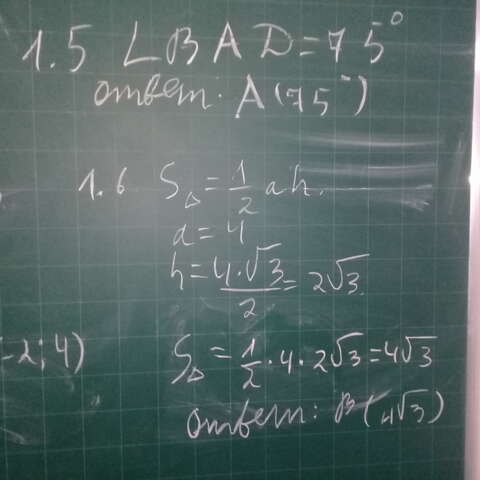 1.5 ∠BAD=75°
ответ: A(75°)
1.6 S△=1/2 ah.
a=4
h=4·√3/2=2√3
-2;4)
S△=1/2·4·2√3=4√3
ответ: B(4√3)